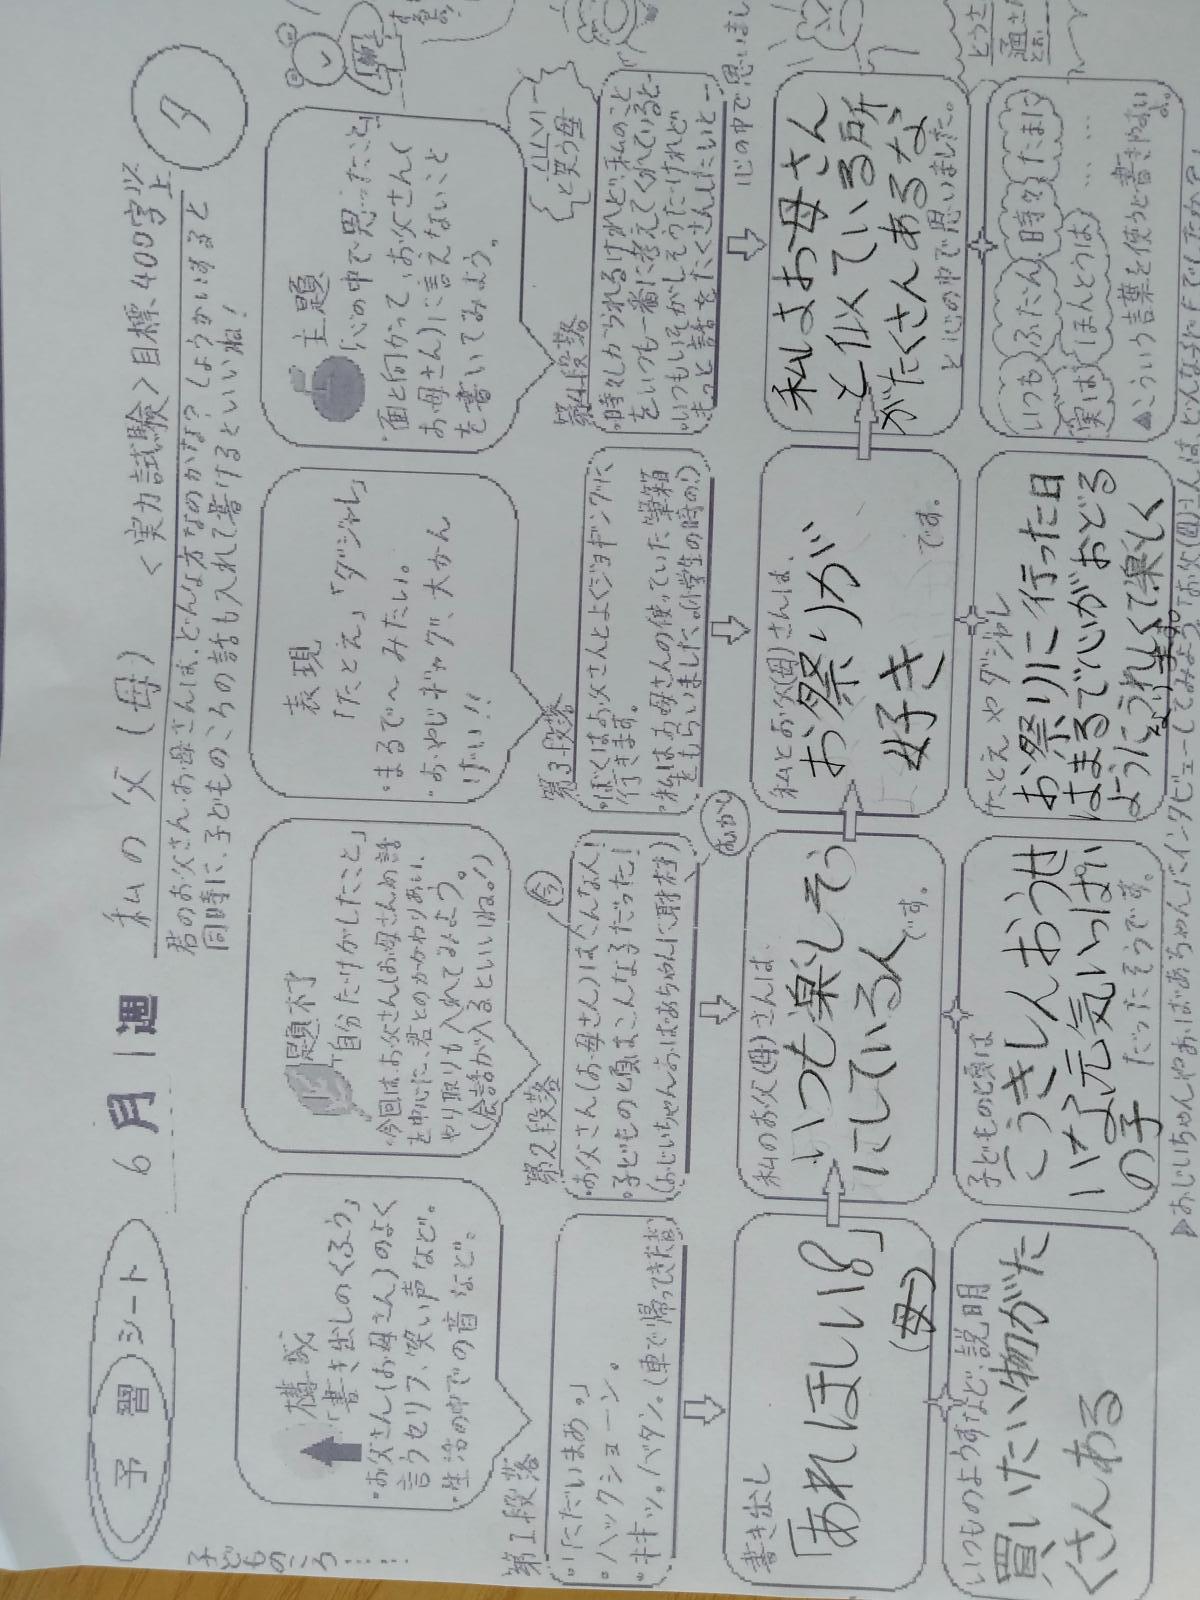 予習シート
6月1週
私の父(母)
<実力試験>目標、400字以上
タ
君のお父さん・お母さんは、どんな方なのかな?しょうかいすると
同時に、子どものころの話も入れて書けるといいね!
構成
「書き出しのくふう」
・お父さん(お母さん)のよく
言うセリフ、笑い声など。
・生活の中での音など。
題材
「自分だけがしたこと」
・今回はお父さん(お母さん)の話
を中心に、君とのかかわりあい、
やり取りも入れてみよう。
(会話が入るといいね。)
表現
「たとえ」「ダジャレ」
・まるで〜みたい。
・おやじギャグ、大かん
げい!!
主題
「心の中で思ったこと」
・面と向かって、お父さん(
お母さん)に言えないこと
を書いてみよう。
子どものころ……
第1段落
・「ただいまあっ」
・ハックショーン。
・キキッ。バタン。(車で帰ってきた音)
第2段落
今
・お父さん(お母さん)はこんな人!
・子どもの頃はこんなふうだった!
(おじいちゃん、おばあちゃんに取材)
むかし
第3段落
・ぼくはお父さんとよくジョギングに
行きます。
・私はお母さんの使っていた筆箱
をもらいました。(小学生の時の!)
第4段落
・時々しかられるけれど、私のこと
をいつも一番に考えてくれていると…
・いつもいそがしそうだけれど
もっと話をたくさんしたいと…
と笑う母
心の中で思いまし
書き出し
「あれほしい?」
(母)
私のお父(母)さんは、
いつも楽しそう
にしている人
です。
私とお父(母)さんは、
お祭りが
好き
です。
私はお母さん
と似ている所
がたくさんあるな
と心の中で思いました。
いつものようすなど、説明
買いたい物がた
くさんある
子どもの頃は
こうきしんおうせ
いな元気いっぱい
の子
だったそうです。
たとえやダジャレ
お祭りに行った日
はまるで心がおどる
ようにうれしくて楽しく
なります。
いつも ふだん 時々 たまに
実は ほんとうは ……
▲こういう言葉を使うと書きやすい
よ。
▶おじいちゃんやおばあちゃんにインタビューしてみよう「お父(母)さんはどんな子だったの?